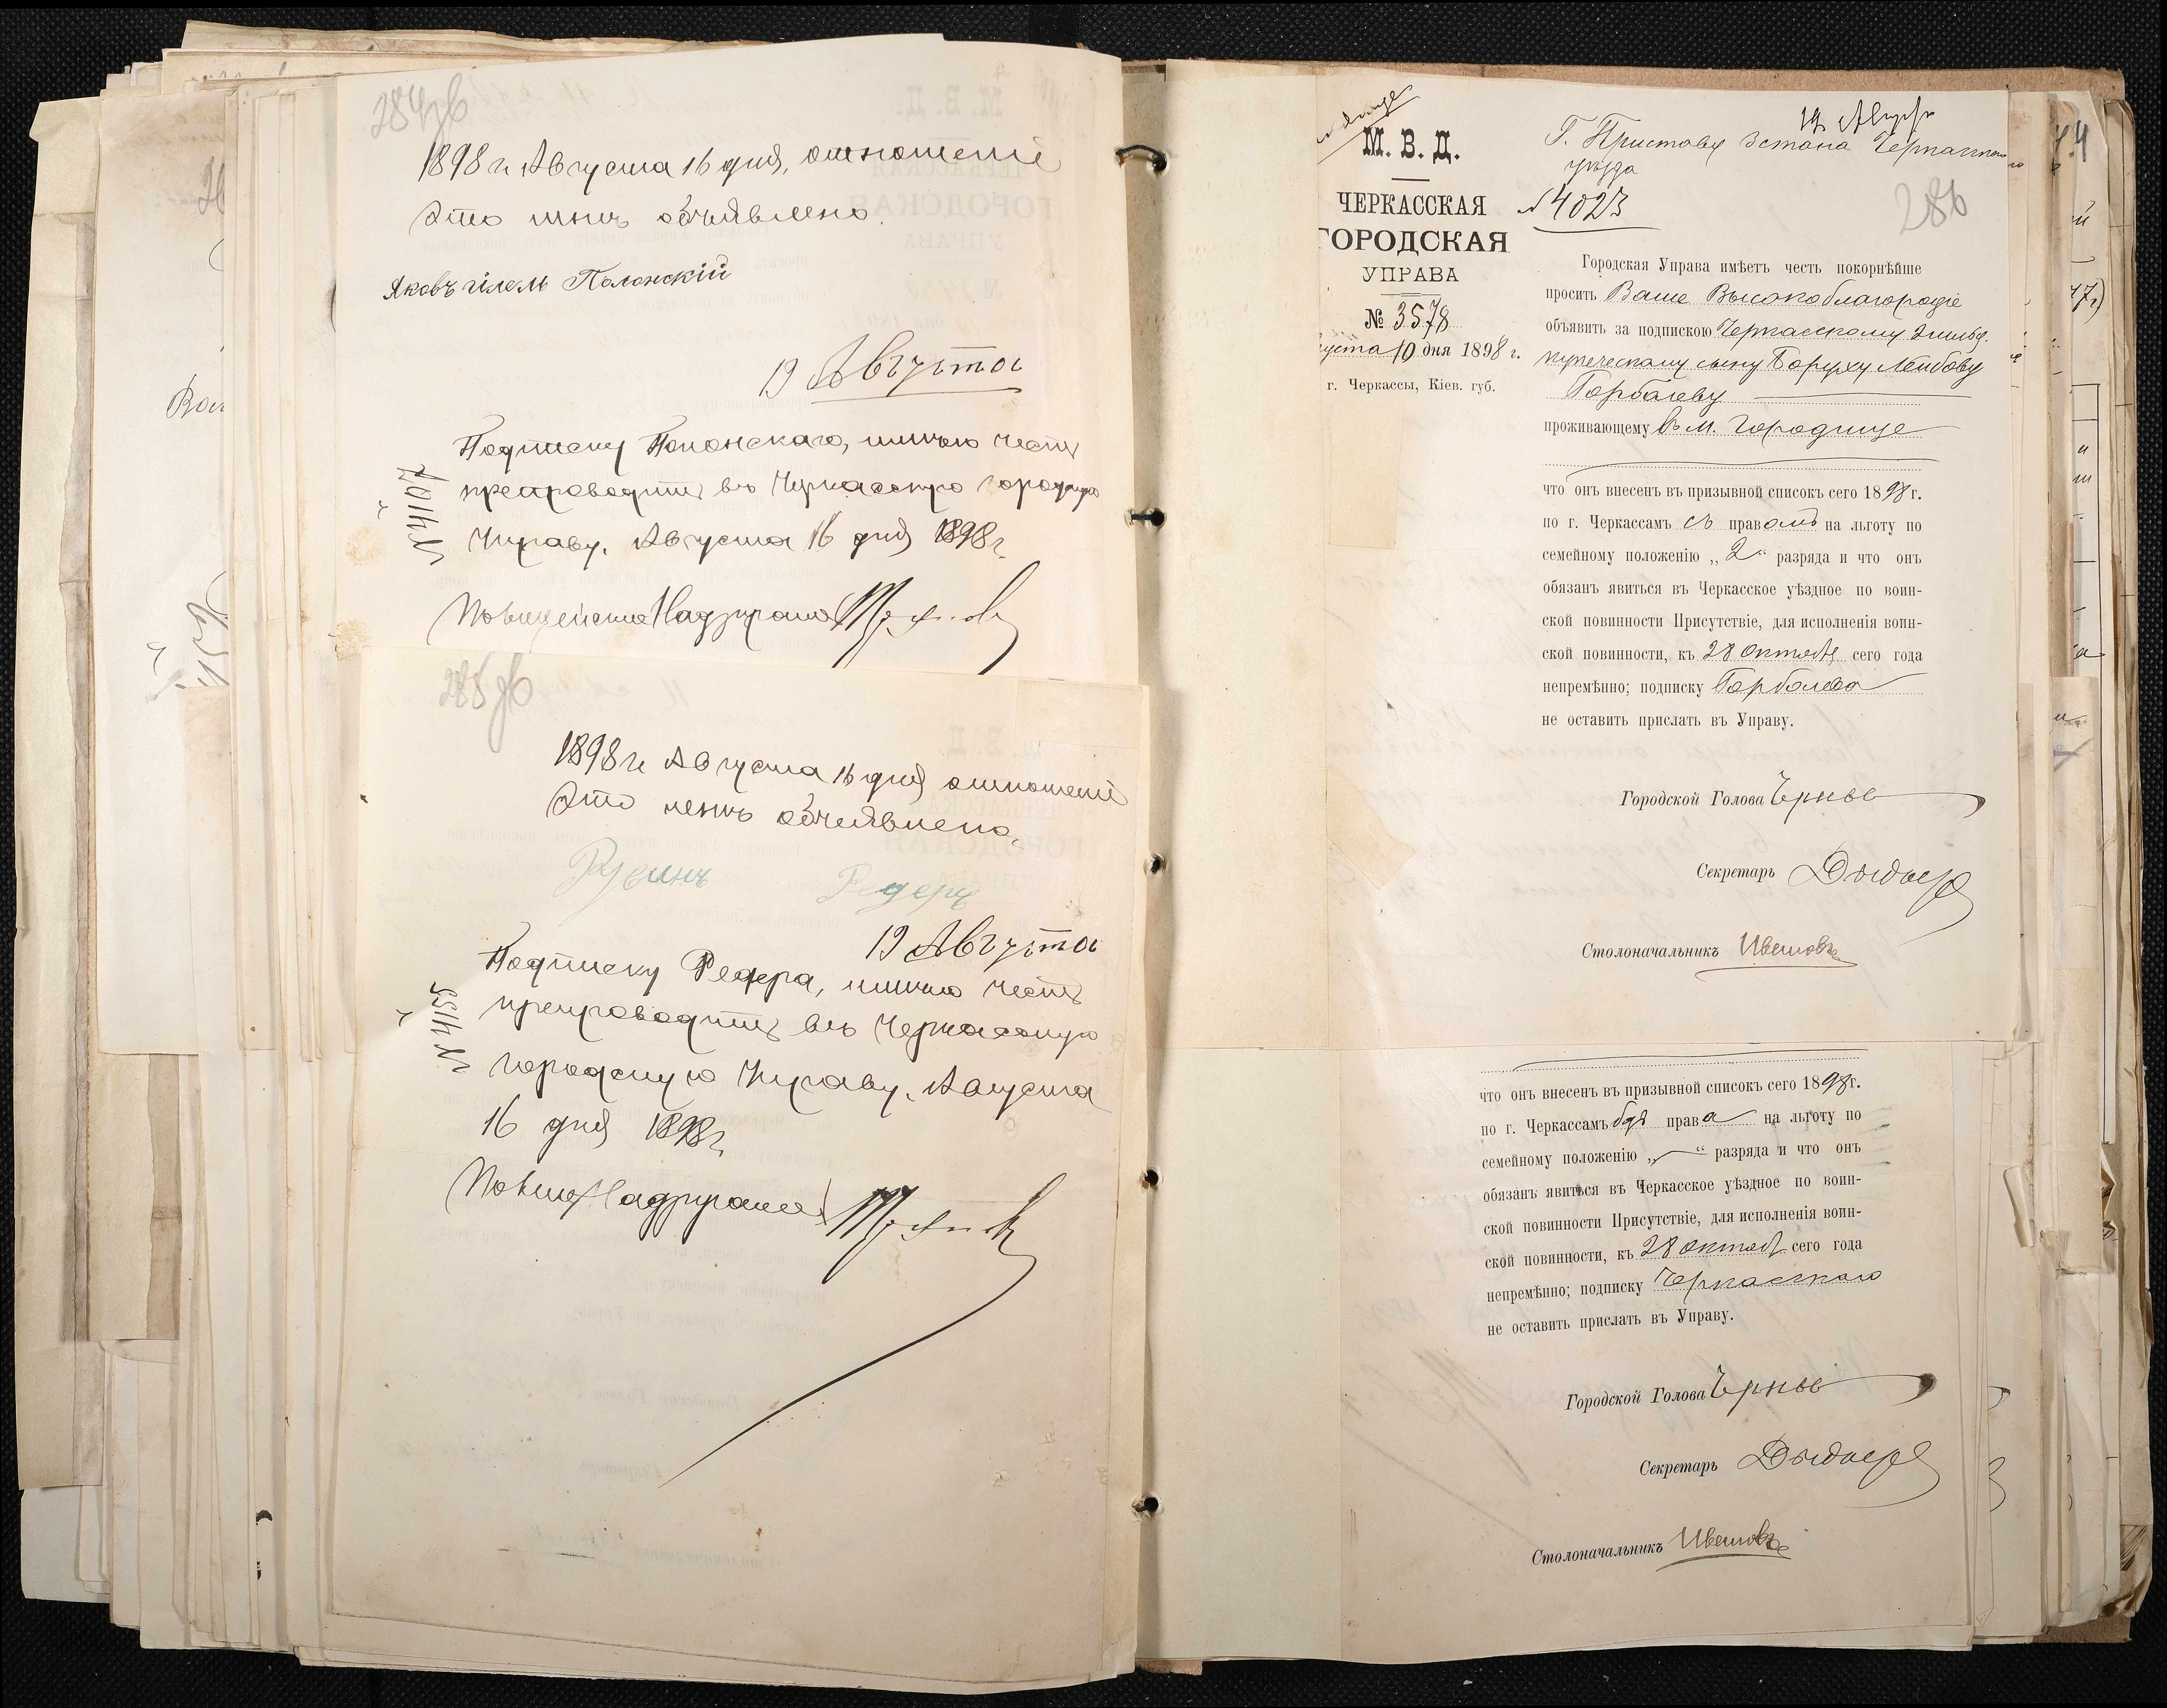 284об
1898 г. Августа 16 дня, отношеніе
это мнѣ объявлено.
Яковъ Гілель Полонскій
19 Августа
Подписку Полонскаго, имѣю честь
препроводить въ Черкасскую Городскую
Управу. Августа 16 дня 1898 г.
Полицейскій Надзиратель
285об
1898 г. Августа 16 дня отношеніе
это мнѣ объявлено.
Рувинъ Редеръ
19 Августа
Подписку Редера, имѣю честь
№ 4155
препроводить въ Черкасскую
Городскую Управу. Августа
16 дня 1898 г.
Полиц. Надзиратель
М. В. Д.
ЧЕРКАССКАЯ
ГОРОДСКАЯ
УПРАВА
№ 3578
густа 10 дня 1898 г.
г. Черкассы, Кіев. губ.
19 Августа
Г. Приставу 3 стана Черкасскаго
уѣзда
№ 4023
286
Городская Управа имѣетъ честь покорнѣйше
проситъ Ваше Высокоблагородіе
объявить за подпискою Черкасскому
купеческому сыну Боруху Лейбову
Горбаеву
проживающему въ м. Городище
что онъ внесенъ въ призывной списокъ сего 1898 г.
по г. Черкассамъ съ правомъ на льготу по
семейному положенію „2“ разряда и что онъ
обязанъ явиться въ Черкасское уѣздное по воин-
ской повинности Присутствіе, для исполненія воин-
ской повинности, къ 28 Октября сего года
непремѣнно; подписку Горбаева
не оставить прислать въ Управу.
Городской Голова
Секретарь
Столоначальникъ
что онъ внесенъ въ призывной списокъ сего 1898 г.
по г. Черкассамъ безъ права на льготу по
семейному положенію „—“ разряда и что онъ
обязанъ явиться въ Черкасское уѣздное по воин-
ской повинности Присутствіе, для исполненія воин-
ской повинности, къ 28 Октяб. сего года
непремѣнно; подписку Черкасскаго
не оставить прислать въ Управу.
Городской Голова
Секретарь
Столоначальникъ